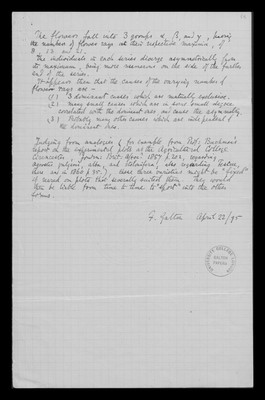 The flowers fall into 3 groups α, β, and γ, having
the number of flower rays at their respective maxima, of
8, 13 and 21.
The individuals in each series diverge asymmetrically from
its maximum, being more numerous on the side of the
end of the series.
It appears then that the causes of the varying number of
flower rays are –
(1) 3 dominant causes which are mutually exclusive.
(2) many small causes which are in some small degree
correlated with the dominant ones and cause the asymmetry.
(3) Probably many other causes which are independent of
the dominant ones.
Judging from analogies (for example from Prof: Buchman's
report on the experimental plots at the Agricultural College
Cirencester,
agrostis vulgaris, alba, and
these three varieties might be "fixed"
if reared on plots that severally suited them. they would
then be liable from time to time to "sport" into the other
forms.
F. Galton April 22/95
GALTON
PAPERS